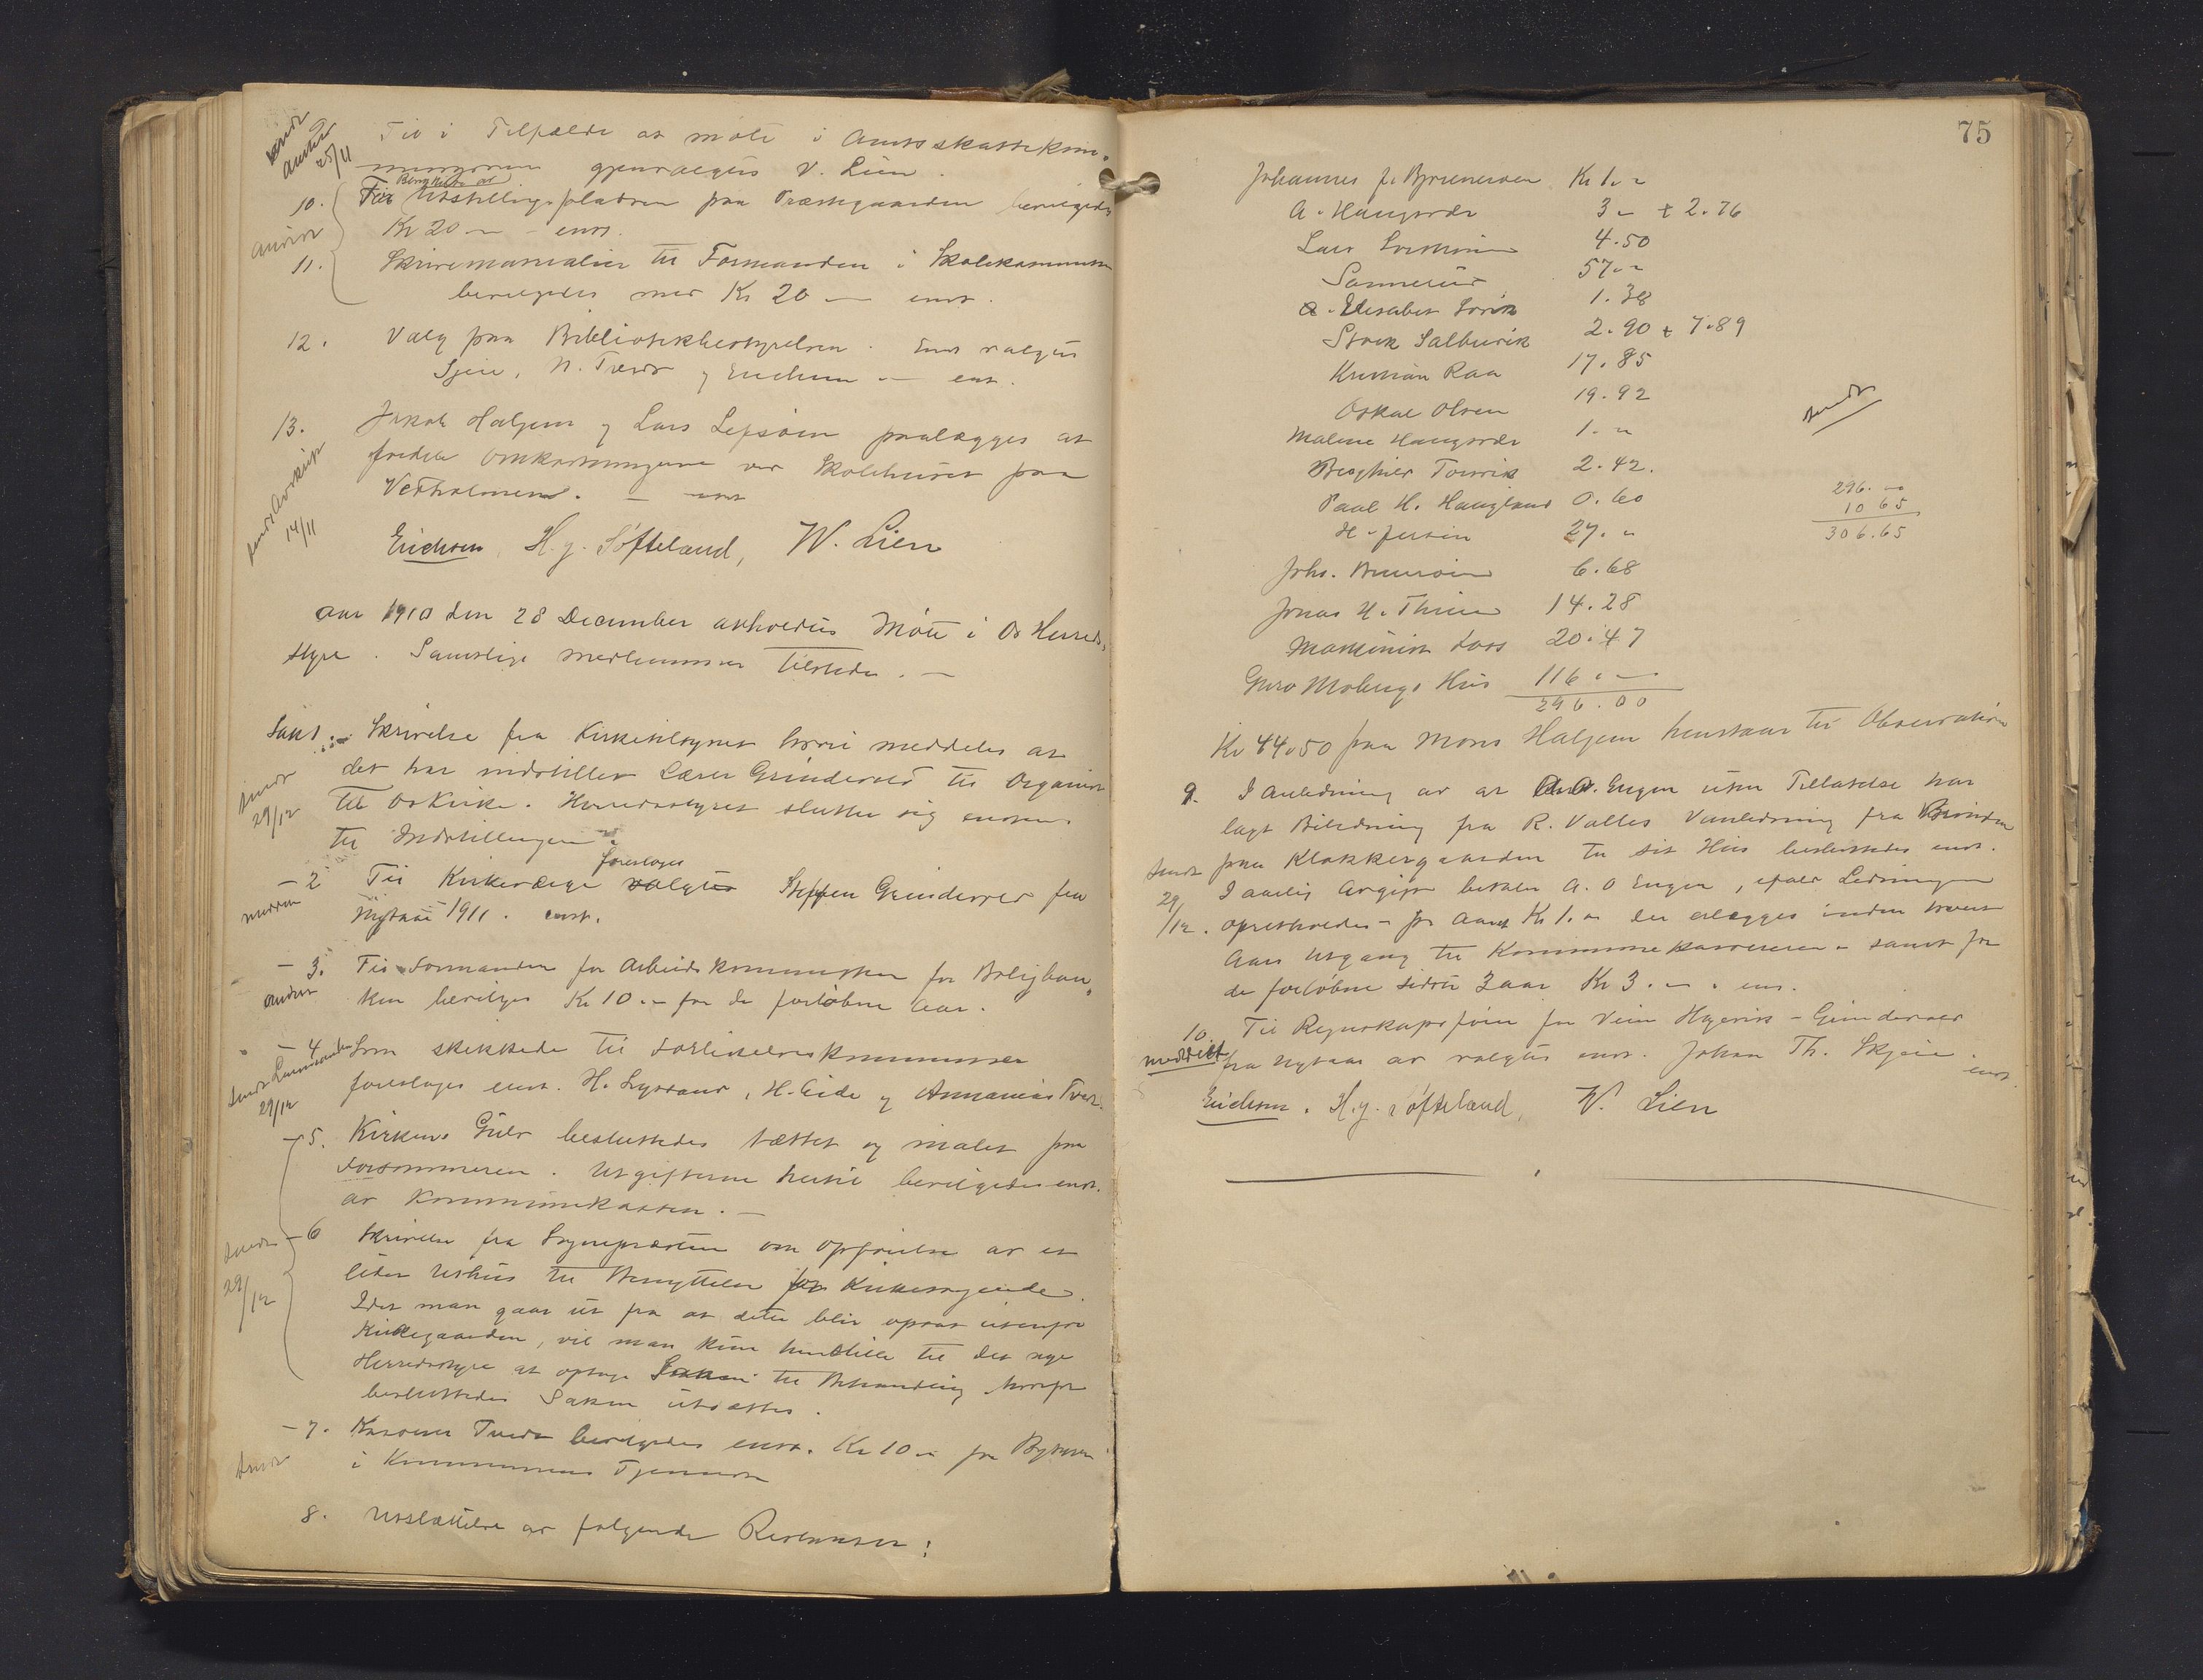 Til i Tilfælde at møte i Amtsskattekom-
gjenvalgtes V. Lien.
sendt
25/11
10. Benyttelse av
Utstillingspladsen paa Præstegaarden bevilgedes
Kr 20 — enst.
anvist
11. Skrivematerialier til Formanden i Skolekommissionen
bevilgedes med Kr 20 — enst.
12. Valg paa Bibliotekbestyrelsen. Enst valgtes
N. Tveit og Erichsen — enst.
13. Jakob Haljem og Lars Lepsøen paalægges at
fordele Omkostningerne ved Skolehuset paa
Vedholmen. — enst
sendt Avskrift
14/11
Erichsen, H. J. Søfteland, W. Lien
Aar 1910 den 28 December avholdtes Møte i Os Herreds-
styre. Samtlige medlemmer tilstede. —
Sak 1. Skrivelse fra Kirketilsynet hvori meddeles at
det har indstillet Lærer Grindevold til Organist
til Os Kirke. Herredsstyret slutter sig enstem.
til Indstillingen
sendt
29/12
foreslages
— 2 Til Kirkeværge valgtes Steffen Grindevold fra
Nytaar 1911. enst.
— 3. Til Formanden for Arbeidskommissionen for Boligban-
ken bevilges Kr 10.— for de forløbne Aar.
anvist
— 4 Som skikkede til Forlikelseskommissær
foreslages enst. H. Lyssand, H. Eide og Annanias Tveit.
sendt Lensmanden
29/12
— 5. Kirkens Gulv besluttedes tættet og malet paa
Forsommeren. Utgifterne hertil bevilgedes enst.
av Kommunekassen. —
— 6 Skrivelse fra Sognepræsten om Opførelse av et
litet Uthus til Benyttelse for Kirkesøgende.
Idet man gaar ut fra at dette blir opsat utenfor
Kirkegaarden, vil man kun henstille til det nye
Herredsstyre at optage Saken til Behandling hvorfor
besluttedes Saken utsættes.
sendt
29/12
— 7. Kasserer Tveit bevilgedes enst. Kr 10 — for Byreiser
i Kommunens Tjeneste
sendt
8. Utslættelse av følgende Restanser:
75
Johannes J. Bjørnerøen Kr 1.—
A. Haugsdr 3 — + 2.76
Lars 4.50
57.—
Elisabet 1.38
Salbuvik 2.90 + 7.89
Kristian Raa 17.85
Oskar Olsen 19.92
Malene Haugsdr 1.—
2.42.
Paal H. Haugland 0.60
27.—
Johs. 6.68
Jonas H. 14.28
20.47
Guro Mobergs Hus 116.—
296.00
sendt
296.—
10 65
306.65
Kr 44.50 paa Mons Haljem henstaar til Observation
9. I Anledning av at A.O. Engen uten Tillatelse har
lagt Biledning fra R. Valles Vandledning fra Brønden
paa Klokkergaarden til sit Hus besluttedes enst.
I aarlig Avgift betaler A. O Engen, ifald Ledningen
opretholdes — pr Aar Kr 1.— der erlægges inden hvert
Aars Utgang til Kommunekassereren — samt for
de forløbne sidste 3 aar Kr 3.— enst.
sendt
29/12.
10. Til Regnskapsfører for Veien Hegvik — Grindevold
fra nytaar av valgtes enst. Johan Th. Skjeie.
enst.
meddelt
Erichsen. H. J. Søfteland, W. Lien